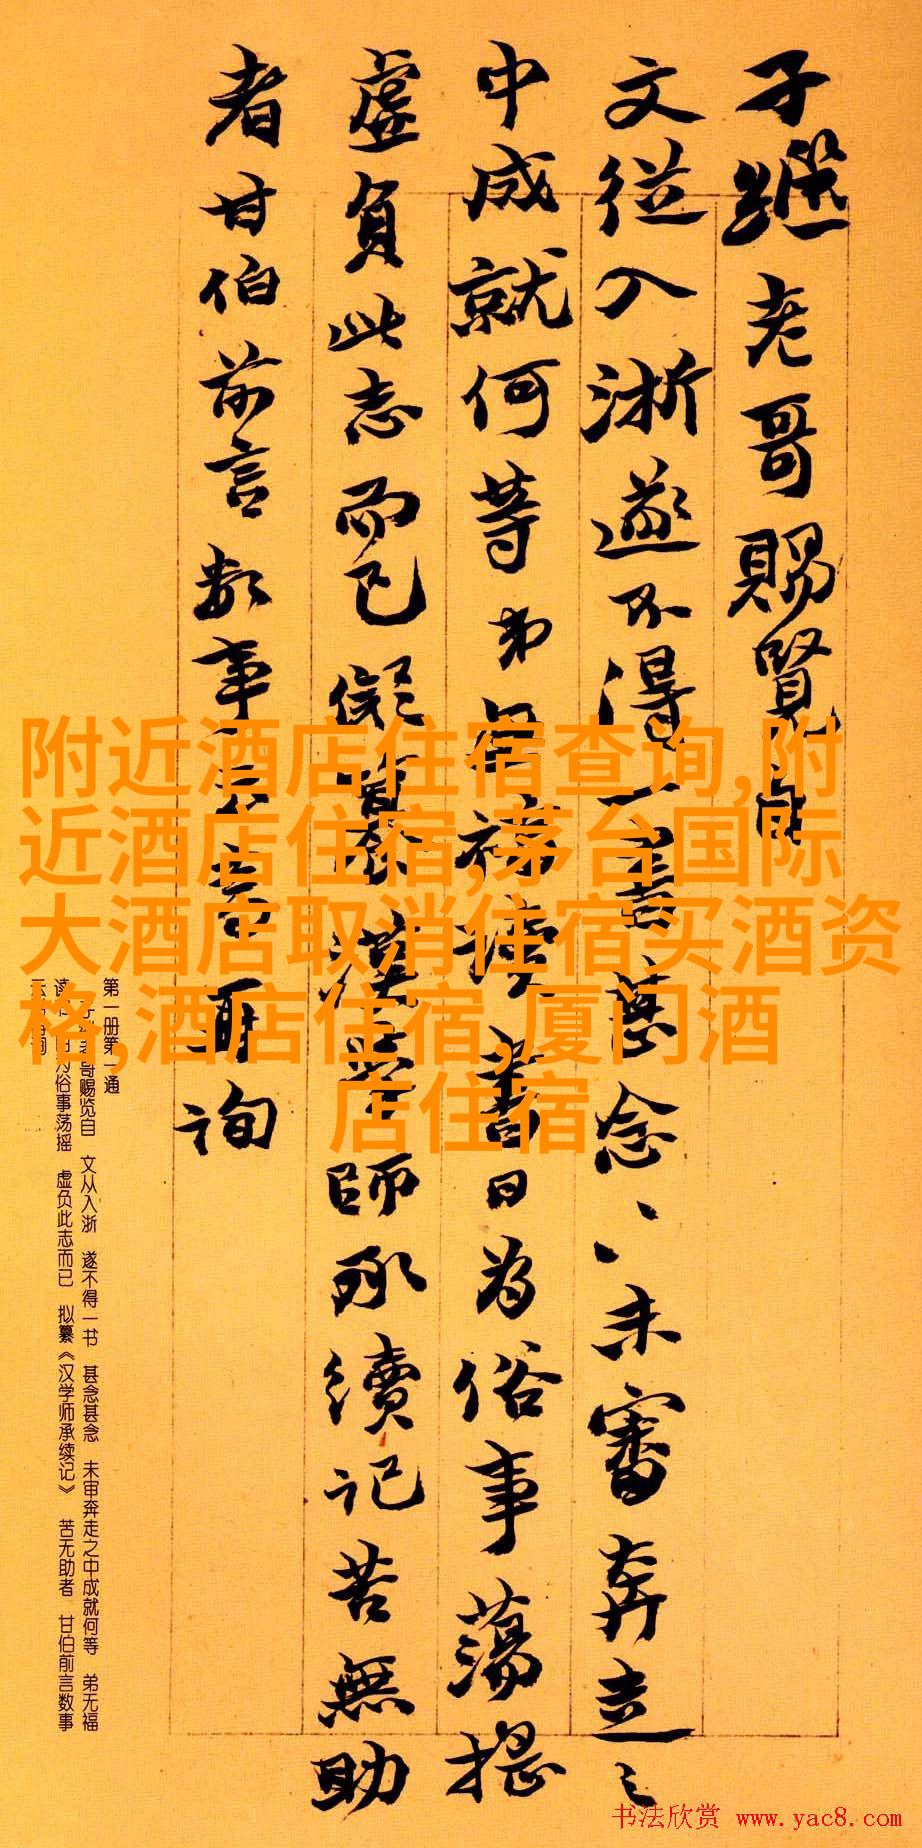 子继老哥賜覧自
文從入浙遂不得一書甚念〻未審奔走之
中成就何等弟無福讀書日為俗事蕩搖
虛負此志而已儗纂漢學師承續記苦無助
者甘伯前言數事
詢
附近酒店住宿查询,附
近酒店住宿,茅台国际
大酒店取消住宿买酒资
格,酒店住宿,厦门酒
店住宿
第一册第一通
哥赐览自 文从入浙 遂不得一书 甚念甚念 未审奔走之中成就何等 弟无福
为俗事荡摇 虚负此志而已 拟纂《汉学师承续记》 苦无助者 甘伯前言数事
书法欣赏 www.yac8.com